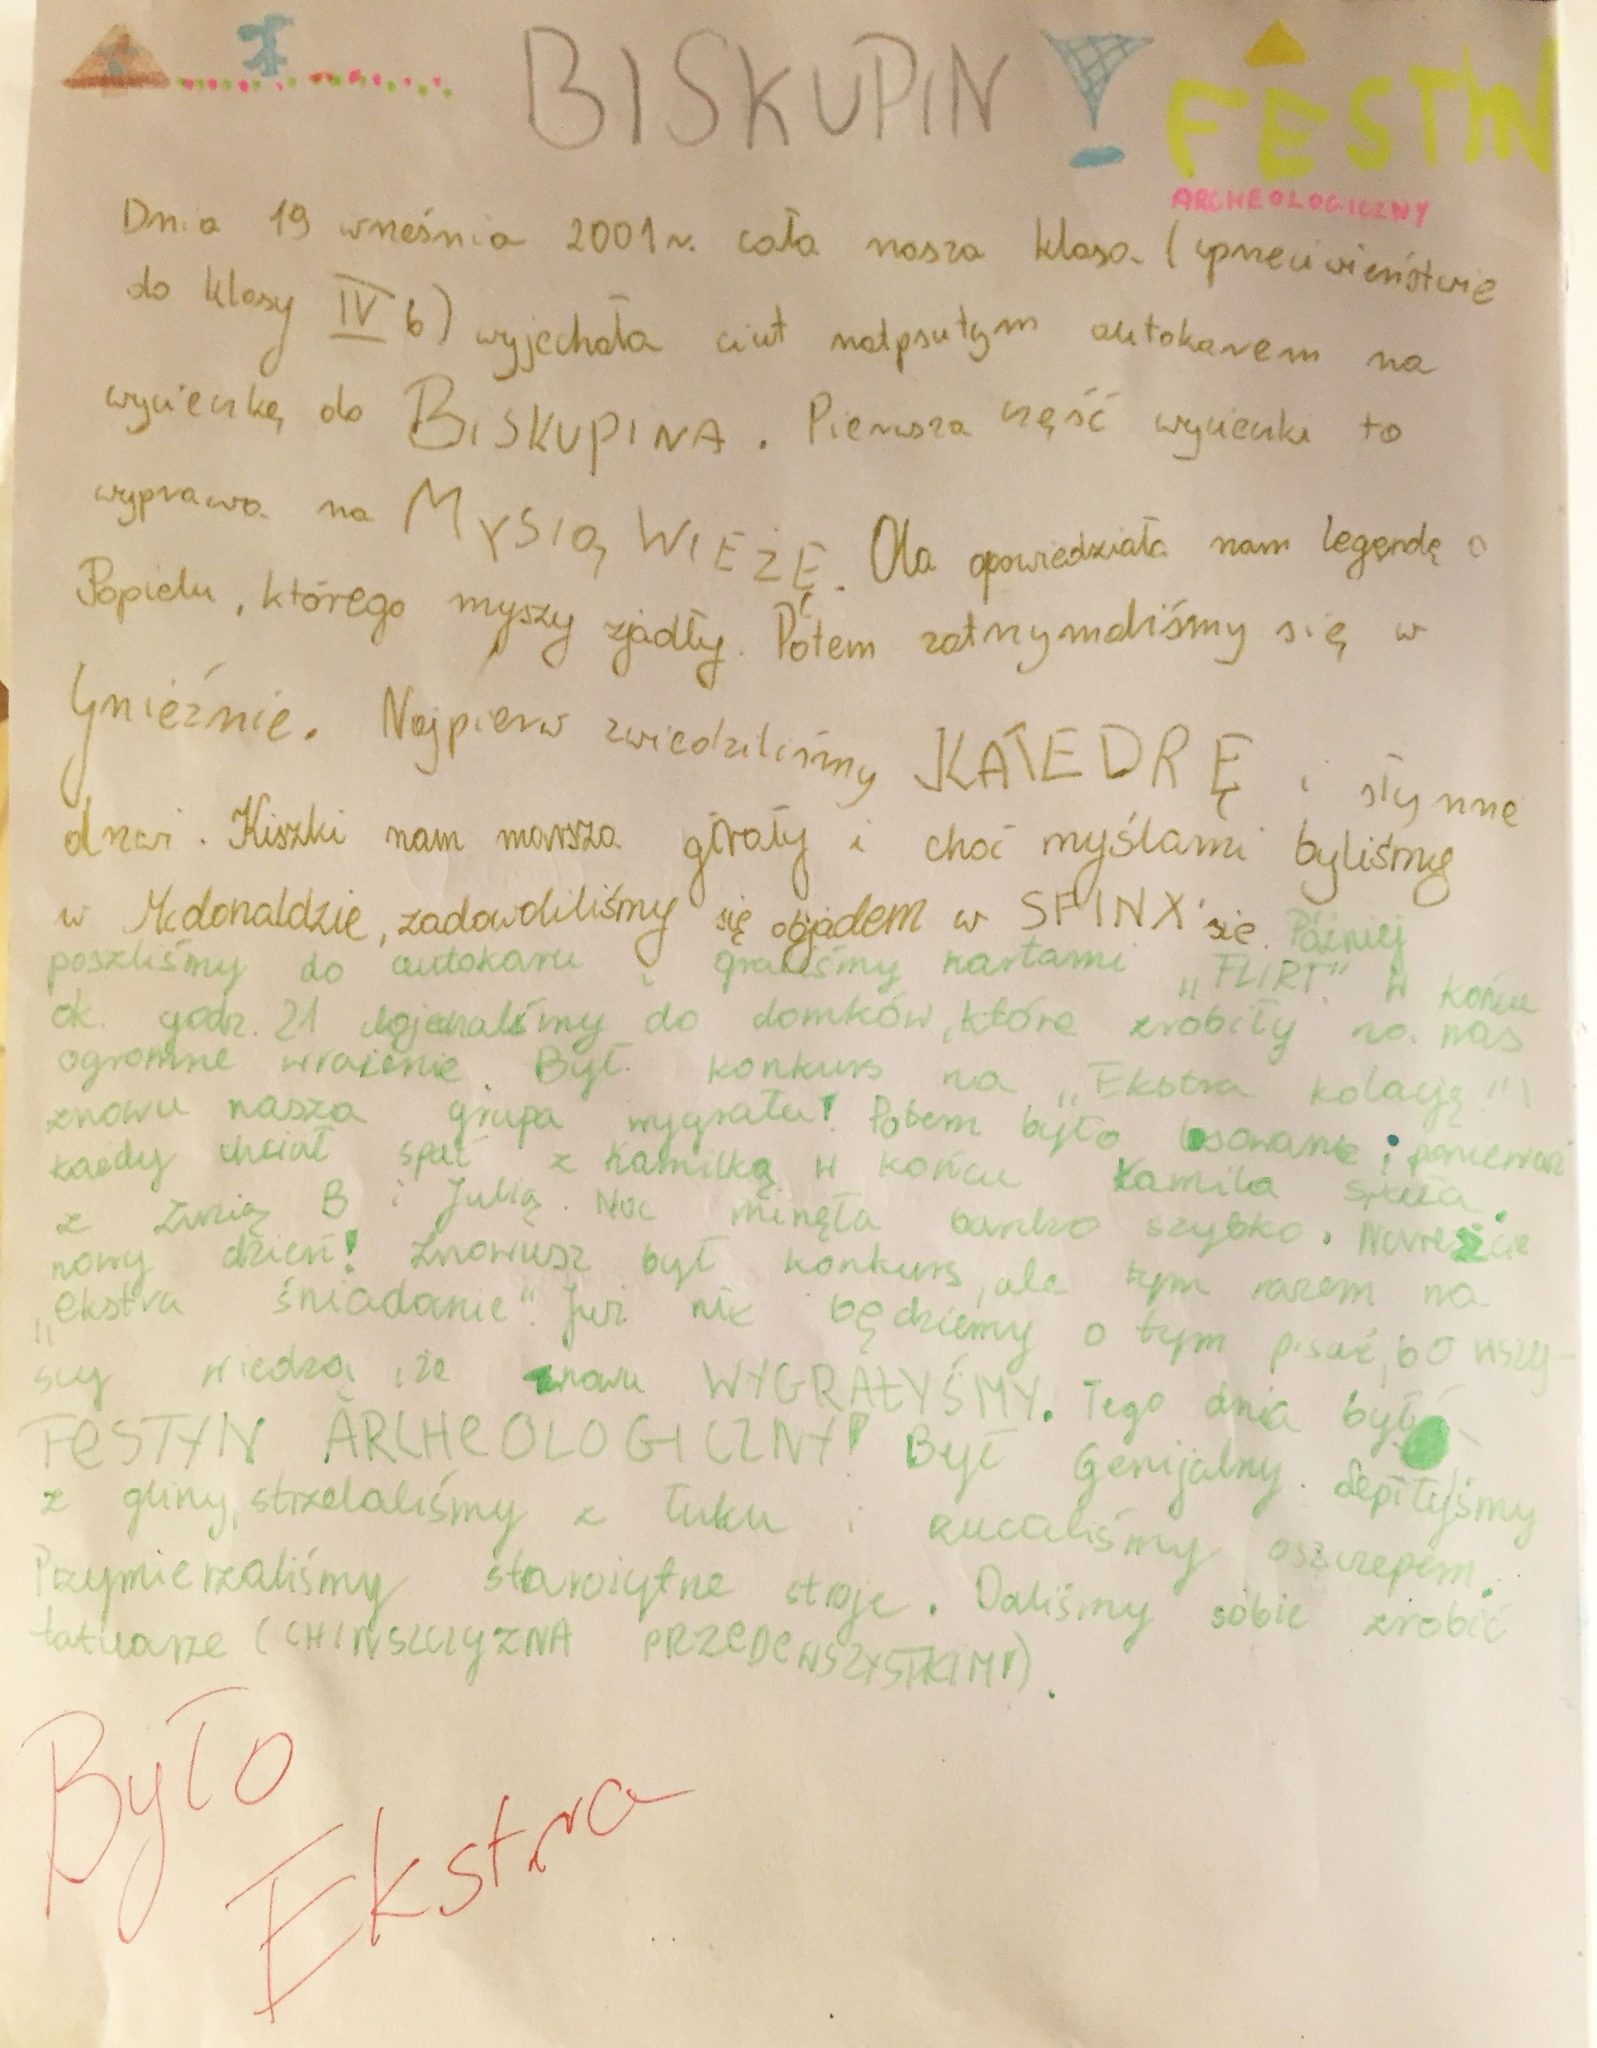 BISKUPIN
FESTYN
ARCHEOLOGICZNY
Dnia 19 września 2001 r. cała nasza klasa (wprzeciwieństwie
do klasy IV b) wyjechała ciut nadpsutym autokarem na
wycieczkę do BISKUPINA. Pierwsza część wycieczki to
wyprawa na MYSIĄ WIEŻĘ. Ola opowiedziała nam legęndę o
Popielu, którego myszy zjadły. Potem zatrzymaliśmy się w
Gnieźnie. Najpierw zwiedziliśmy KATEDRĘ i słynne
drzwi. Kiszki nam marsza grały i choć myślami byliśmy
w Mcdonaldzie, zadowoliliśmy się objadem w SFINX'sie. Później
poszliśmy do autokaru i graliśmy kartami „FLIRT". W końcu
ok. godz. 21 dojechaliśmy do domków, które zrobiły na nas
ogromne wrażenie. Był konkurs na „Ekstra kolację" i
znowu nasza grupa wygrała! Potem było losowanie, ponieważ
każdy chciał spać z Kamilką, w końcu Kamila spała
z Zuzią B i Julią. Noc minęła bardzo szybko. Nareszcie
nowy dzień! Znowusz był konkurs, ale tym razem na
„ekstra śniadanie". Już nie będziemy o tym pisać, bo wszy-
scy wiedzą, że znowu WYGRAŁYŚMY. Tego dnia był
FESTYN ARCHEOLOGICZNY! Był Genijalny. Lepiłyśmy
z gliny, strzelaliśmy z łuku i rzucaliśmy oszczepem.
Przymierzaliśmy starożytne stroje. Daliśmy sobie zrobić
tatuarze (CHINSZCZYZNA PRZEDEWSZYSTKIM!).
Było
Ekstra